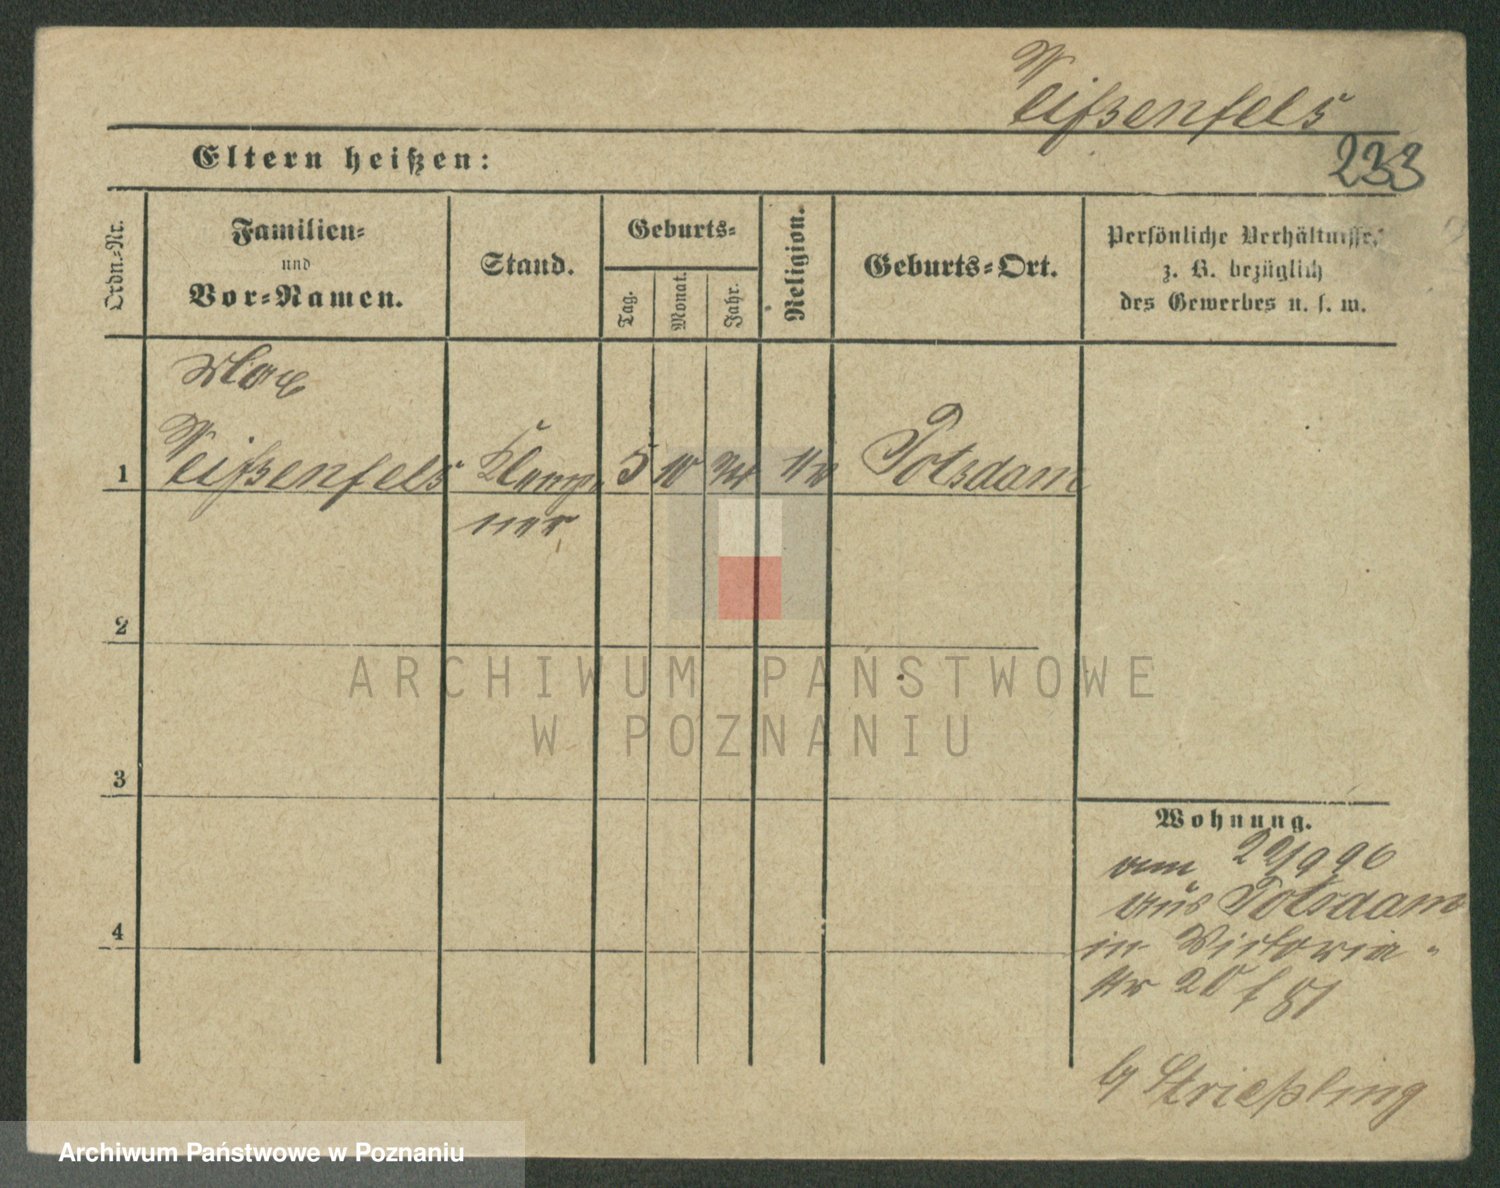 Weißenfels
233
Eltern heißen:
Ordn.-Nr.
Familien-
und
Vor-Namen.
Stand.
Geburts-
Tag.
Monat.
Jahr.
Religion.
Geburts-Ort.
Persönliche Verhältnisse,
z. B. bezüglich
des Gewerbes u. s. w.
Max
1 Weißenfels Klemp- 5 10 Potsdam
ner
2
3
4
Wohnung.
am 22/9 96
aus Potsdam
in Victoria-
str 20
b/ Strießling
ARCHIWUM PAŃSTWOWE
W POZNANIU
Archiwum Państwowe w Poznaniu